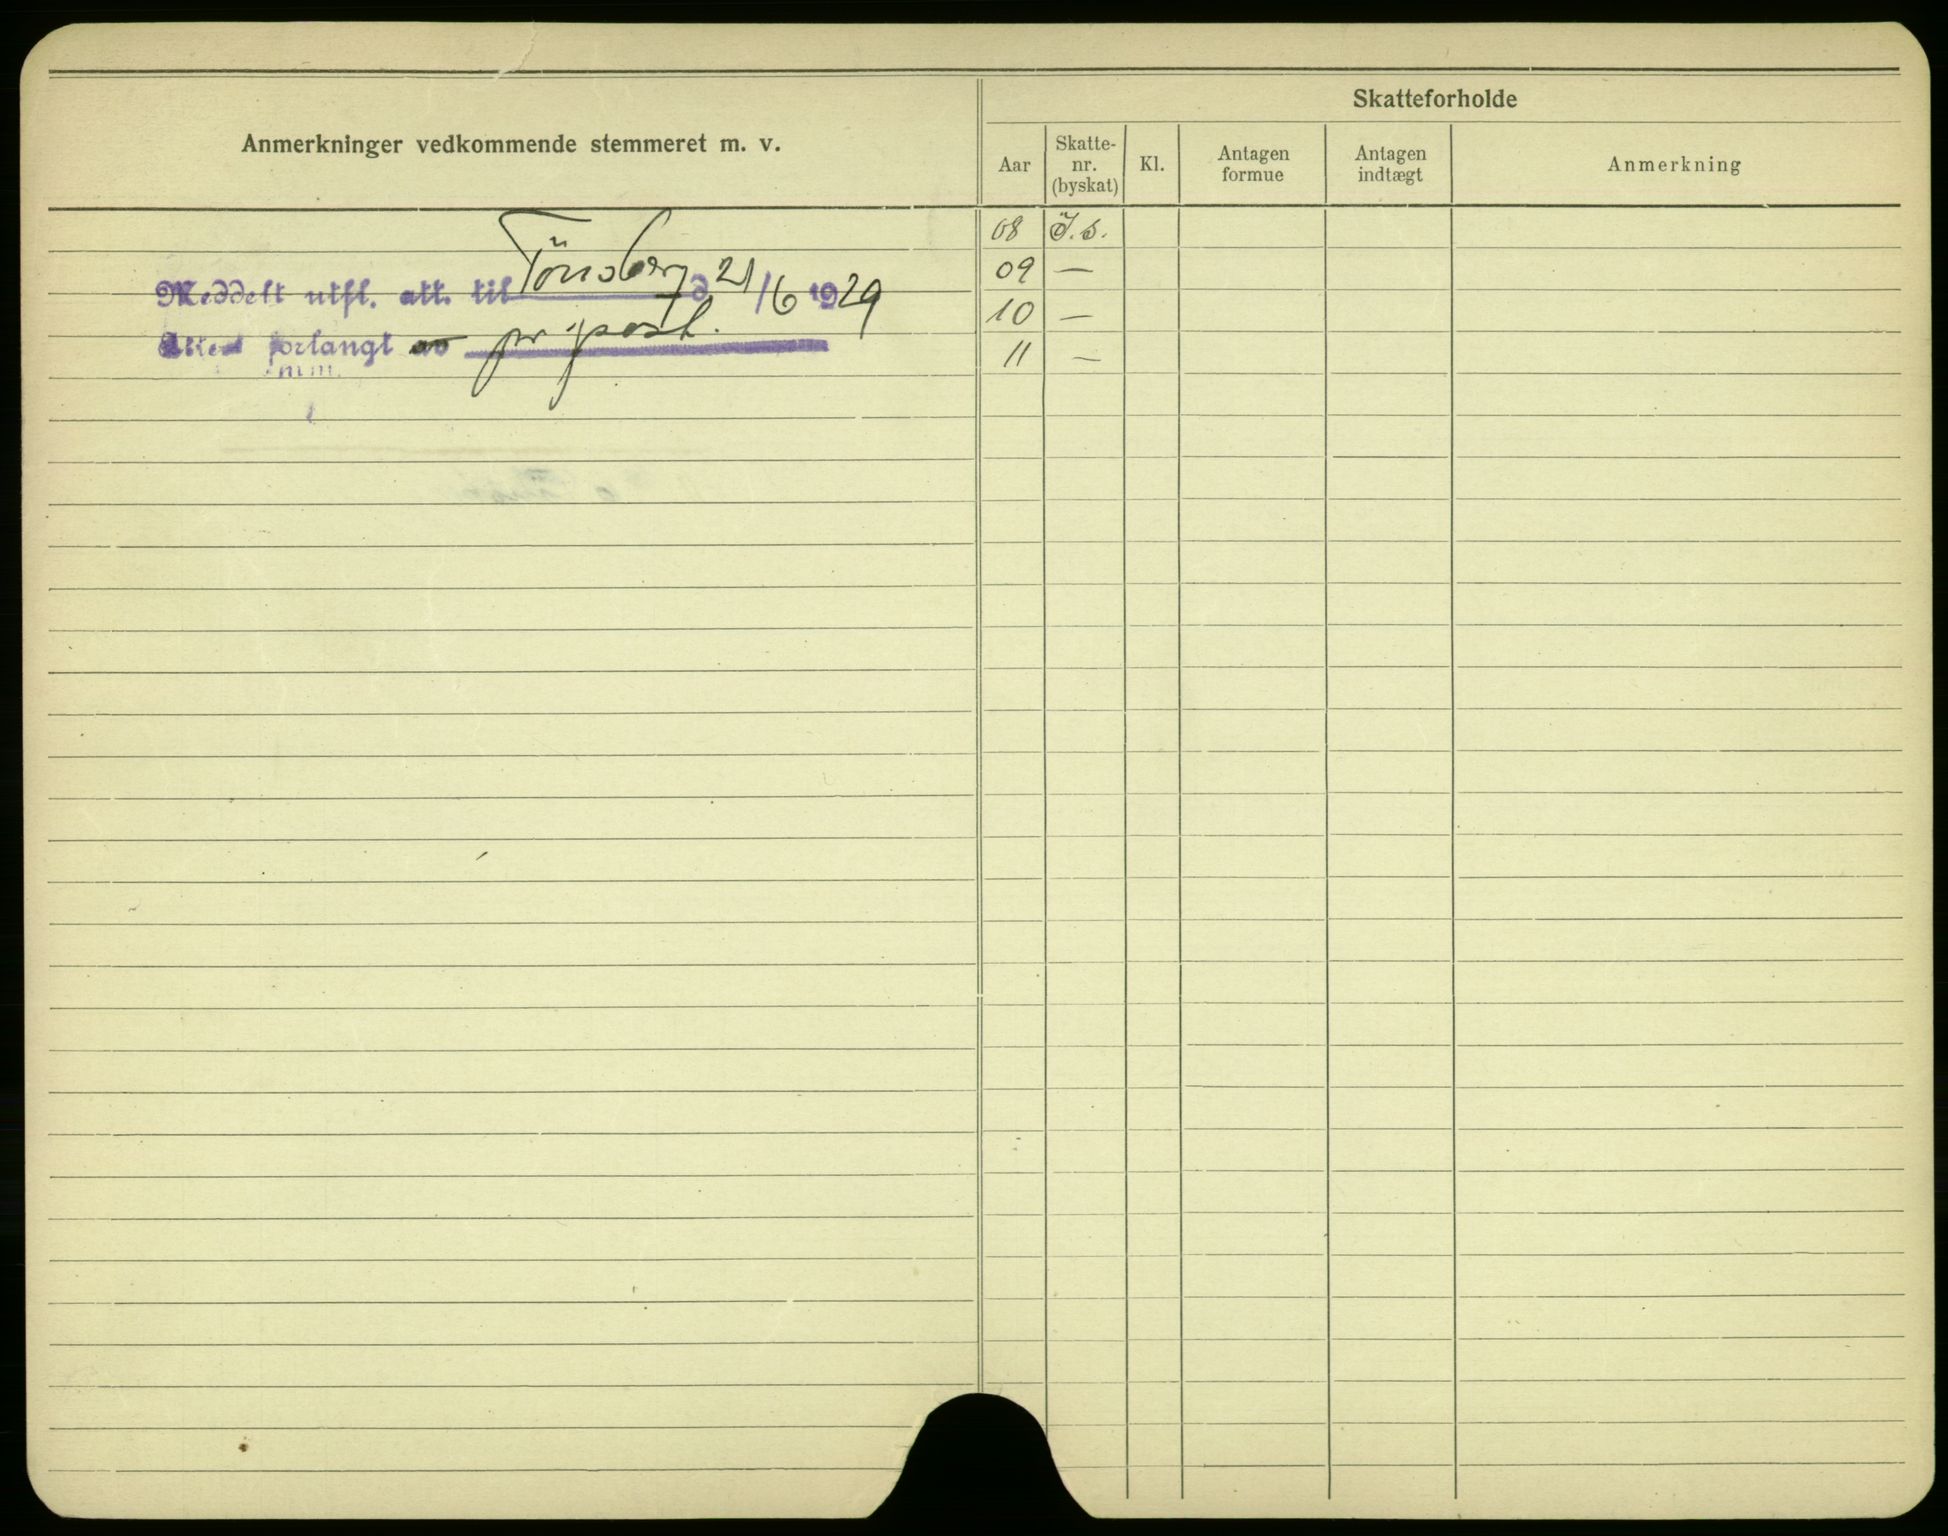 Anmerkninger vedkommende stemmeret m. v.
Skatteforholde
Aar
Skatte-
nr.
(byskat)
Kl.
Antagen
formue
Antagen
indtægt
Anmerkning
Meddelt utfl. att. til Tönsberg d 21/6 1929
Attest forlangt av pr post.
08
09 —
10 —
11 —